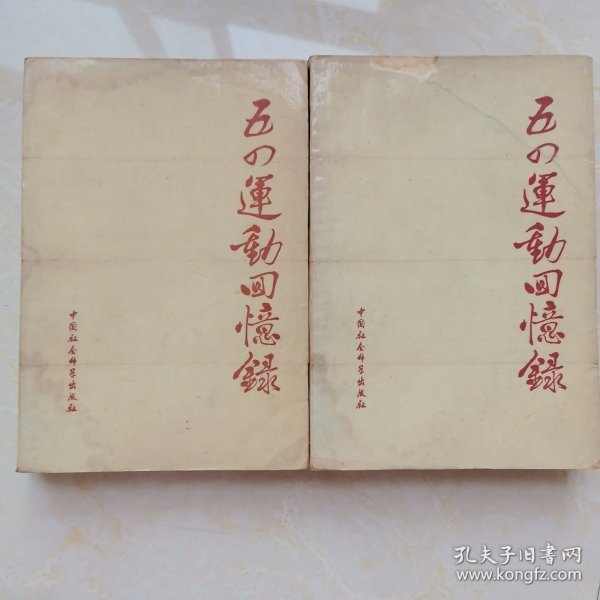 五四運動回憶録
中国社会科学出版社
五四運動回憶録
中国社会科学出版社
孔夫子旧書网
www.kongfz.com